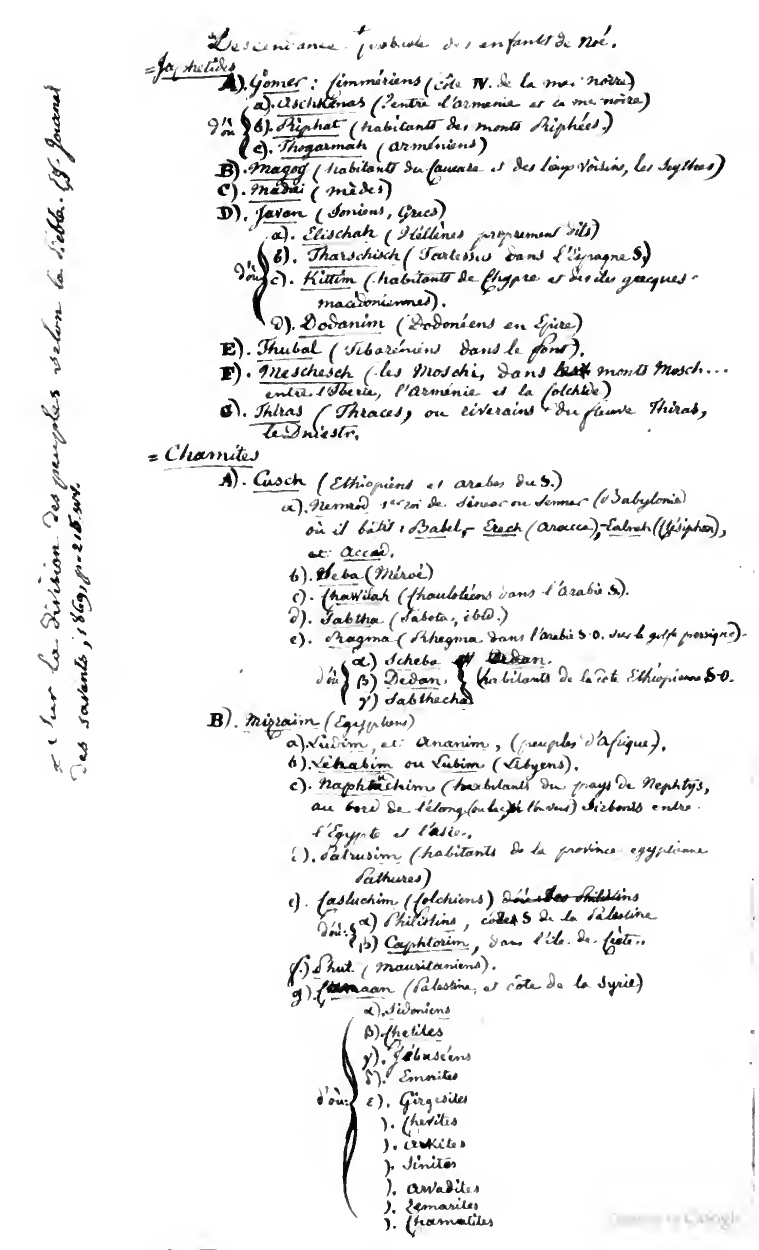 Descendance probable des enfants de Noé.
= Japhétides
A). Gomer : Cimmériens (côte N. de la mer noire)
a). Aschkénas (? entre l'arménie et la mer noire)
d'où
b). Riphat (habitants des monts Riphées.)
c). Thogarmah (arméniens)
B). Magog (habitants du Caucase et des lieux voisins, les Scythes)
C). Madaï (mèdes)
D). Javan (Ioniens, Grecs)
a). Elischah (Hellènes proprement dits)
b). Tharschisch (Tartessus dans l'Espagne S.)
d'où
c). Kittim (habitants de Chypre et des iles grecques-
macédoniennes).
d). Dodanim (Dodonéens en Epire)
E). Thubal (Tibaréniens dans le Pont).
F). Meschesch (les Moschi, dans les monts Mosch...
entre l'Iberie, l'Arménie et la Colchide)
G). Thiras (Thraces, ou riverains du fleuve Thiras,
le Dniestr.
= Chamites
A). Cusch (Ethiopiens et arabes du S.)
a). Nemrod 1er roi de Sinear ou Sennar (Babylonie)
où il bâtit : Babel, Erech (Aracca), Calneh (Ctésiphon),
et Accad.
b). Seba (Méroé)
c). Chawilah (Chaulotéens dans l'Arabie S.).
d). Sabtha (Sabota, ibid.)
e). Ragma (Rhegma dans l'arabie S-O. sur le golfe persique).
α) Scheba et Dedan.
d'où
β) Dedan. (habitants de la côte Ethiopienne S-O.
γ) Sabthecha
B). Mizraim (Egyptiens)
a). Ludim, et Ananim, (peuples d'Afrique).
b). Lehabim ou Lubim (Libyens).
c). Naphtuchim (habitants du pays de Nephtys,
au bord de l'étang (ou lac) Sirbonis entre
l'Egypte et l'asie.
d). Patrusim (habitants de la province egyptienne
Pathures)
e). Casluchim (Colchiens) d'où les Philistins
d'où:
α) Philistins, côte S de la Palestine
β) Caphtorim, dans l'île de Crète.
f.) Phut (Mauritaniens).
g). Canaan (Palestine, et côte de la Syrie)
α). Sidoniens
β). Chetites
γ). Jébuséens
δ). Emorites
d'où:
ε). Girgesites
). Chevites
). Arkites
). Sinites
). Arvadites
). Zemarites
). Chamatites
Sur la division des peuples selon la Bible. Cf. Journal
des savants, 1869, p. 215. svt.